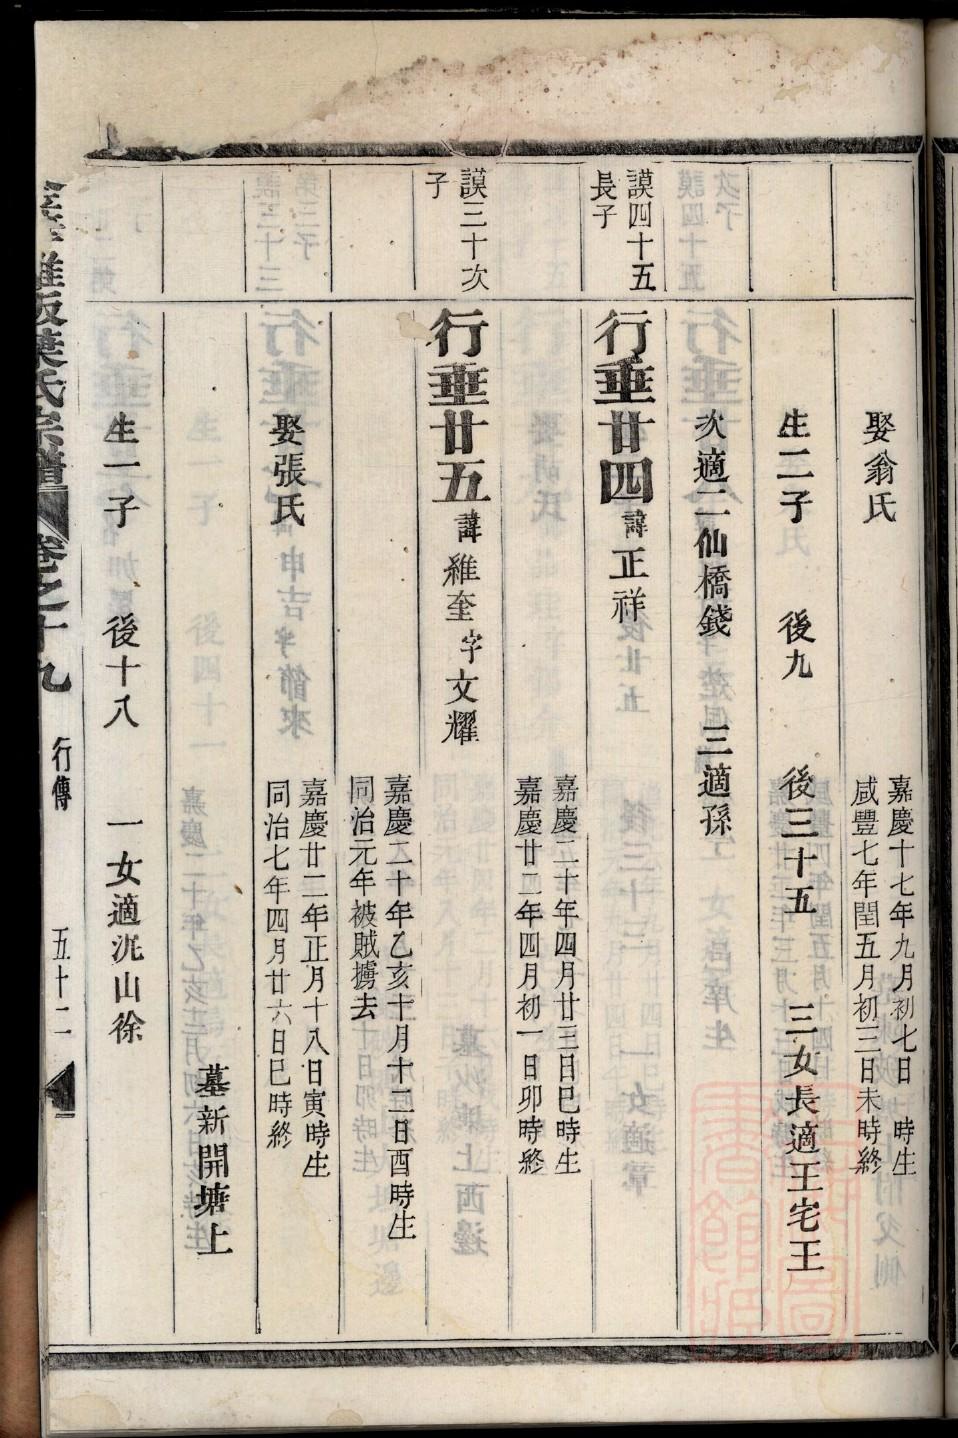 娶翁氏
嘉慶十七年九月初七日 時生
咸豐七年閏五月初三日未時終
生二子 後九 後三十五 三女長適王宅王
次適二仙橋錢 三適孫
謨四十五
長子
行垂廿四 諱正祥
嘉慶二十年四月廿三日巳時生
嘉慶廿二年四月初一日卯時終
謨三十次
子
行垂廿五 諱維奎字文耀
嘉慶二十年乙亥十月十二日酉時生
同治元年被賊擄去
娶張氏
嘉慶廿二年正月十八日寅時生
同治七年四月廿六日巳時終
墓新開塘上
生一子 後十八 一女適沈山徐
雅坂葉氏宗譜 卷之十九 行傳 五十二